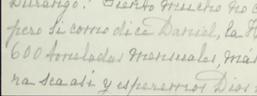 Durango. Siento mucho no c
pero si como dice Daniel, la H
600 toneladas mensuales, más
ra sea así y esperemos Dios